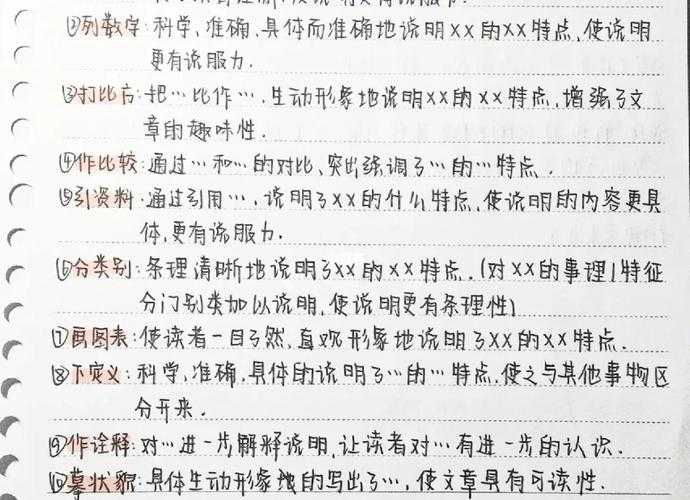 ②列数字:科学,准确,具体而准确地说明XX的XX特点,使说明
更有说服力.
③打比方:把…比作….生动形象地说明XX的XX特点,增强了文
章的趣味性.
④作比较:通过…和…的对比,突出强调了…的…特点.
⑤引资料:通过引用…,说明了XX的什么特点,使说明的内容更具
体,更有说服力.
⑥分类别:条理清晰地说明了XX的XX特点.(对XX的事理/特征
分门别类加以说明,使说明更有条理性)
⑦画图表:使读者一目了然,直观形象地说明了XX的XX特点.
⑧下定义:科学,准确,具体的说明了…的…特点,使之与其他事物区
分开来.
⑨作诠释:对…进一步解释说明,让读者对…有进一步的认识.
⑩摹状貌:具体生动形象地的写出了…,使文章具有可读性.